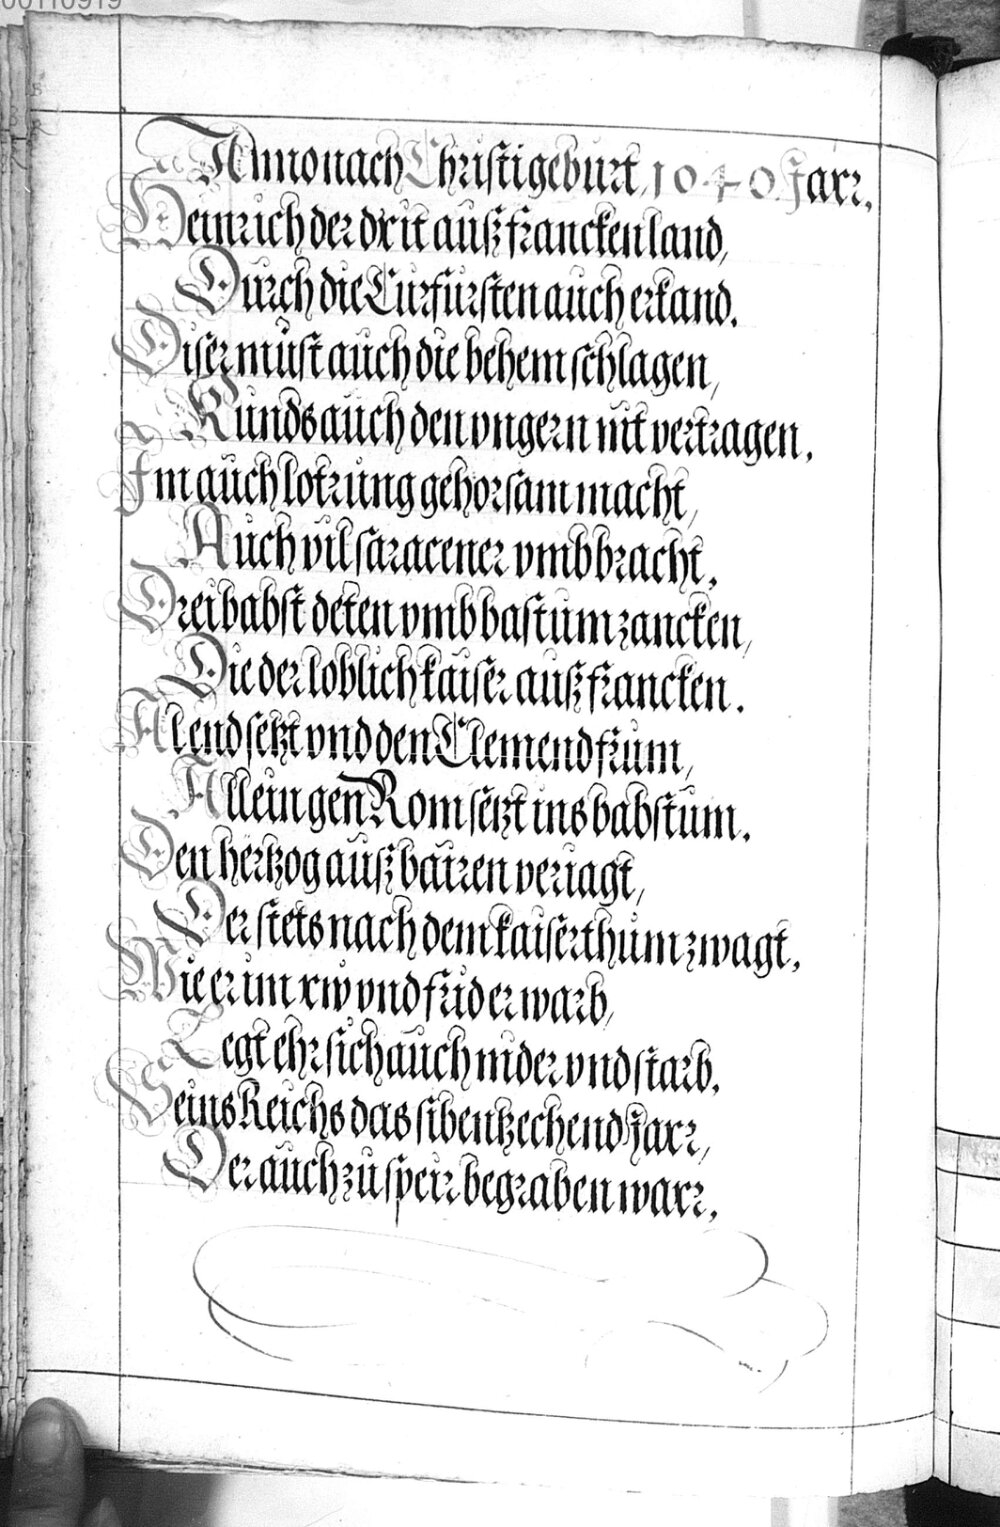 00110919
Anno nach Christi geburt 1040. Jarr.
Heinrich der drit auß francken land,
Durch die Curfursten auch erkand.
Diser must auch die behem schlagen,
Kunds auch den vngern nit vertragen.
Im auch lotrung gehorsam macht,
Auch vil saracener vmbbracht.
Drei babst deten vmb bastum zancken,
Die der loblich kaiser auß francken.
All end setzt vnd den Clemend frum,
Allein gen Rom setzt ins babstum.
Den hertzog auß bairen veriagt,
Der stets nach dem kaiserthum zwagt.
Wie er im rw vnd frid erwarb,
Legt ehr sich auch nider vnd starb.
Seins Reichs das sibentzechend Jarr,
Der auch zu speir begraben warr.